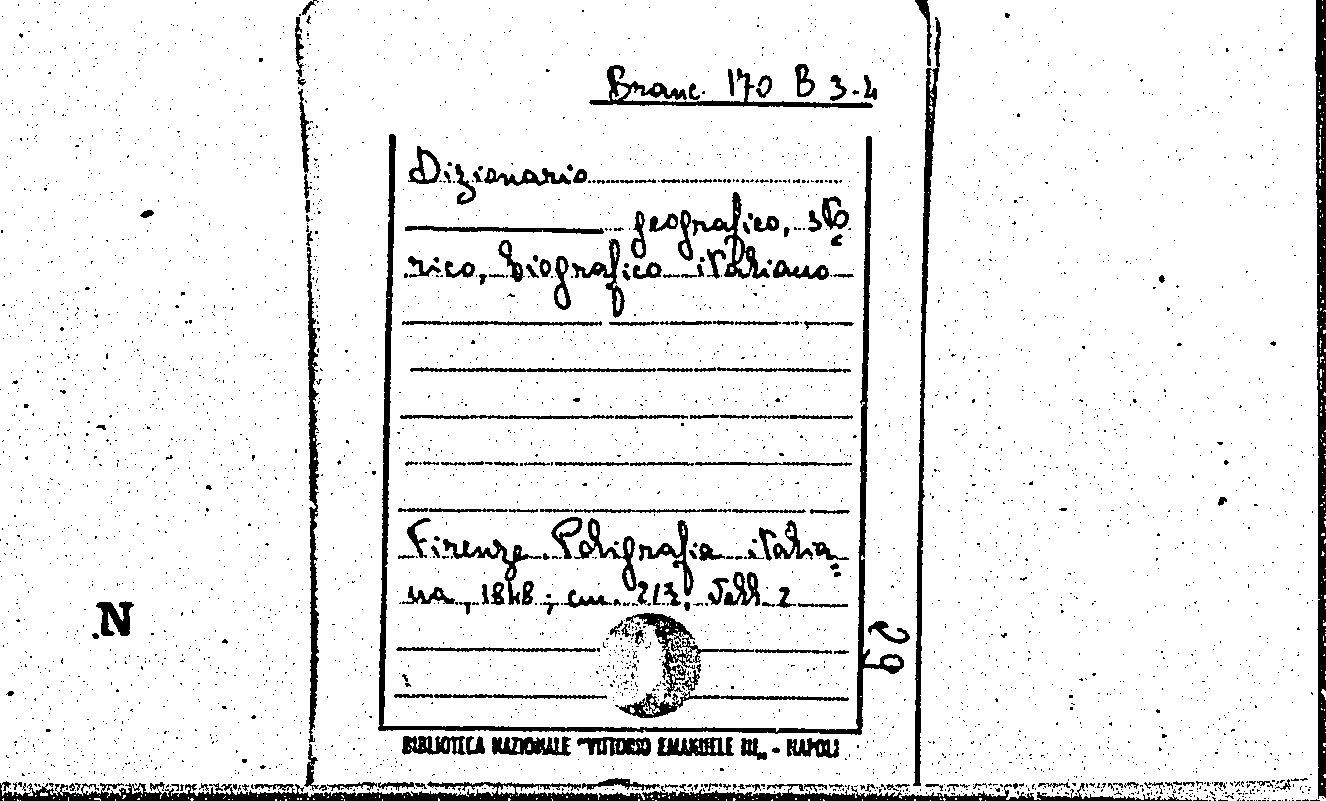 Branc. 170 B 3-4
Dizionario
geografico, sto=
rico, biografico italiano
Firenze. Poligrafia italia=
na, 1848; cm. 217. Voll. 2
N
29
BIBLIOTECA NAZIONALE "VITTORIO EMANUELE III„ - NAPOLI